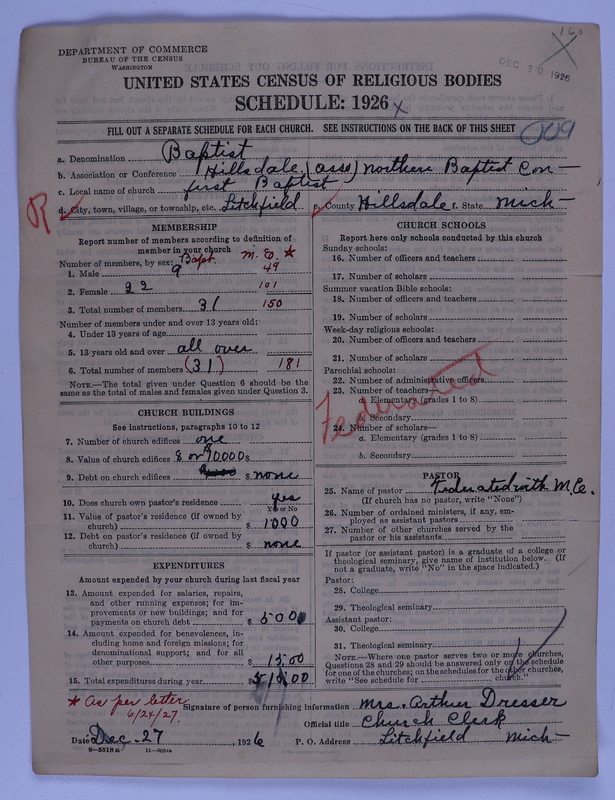 16
DEPARTMENT OF COMMERCE
BUREAU OF THE CENSUS
WASHINGTON
DEC 30 1926
UNITED STATES CENSUS OF RELIGIOUS BODIES
SCHEDULE: 1926 x
FILL OUT A SEPARATE SCHEDULE FOR EACH CHURCH. SEE INSTRUCTIONS ON THE BACK OF THIS SHEET
009
a. Denomination Baptist
b. Association or Conference Hillsdale (asso) northern Baptist Con-
c. Local name of church first Baptist
R d. City, town, village, or township, etc. Litchfield e. County Hillsdale f. State Mich-
MEMBERSHIP
Report number of members according to definition of
member in your church
Number of members, by sex: Bapt. M. E. *
1. Male 9 49
2. Female 22 101
3. Total number of members 31 150
Number of members under and over 13 years old:
4. Under 13 years of age
5. 13 years old and over all over
6. Total number of members (31) 181
NOTE.—The total given under Question 6 should be the
same as the total of males and females given under Question 3.
CHURCH BUILDINGS
See instructions, paragraphs 10 to 12
7. Number of church edifices one
8. Value of church edifices 8 or $10000 $
9. Debt on church edifices $ none
10. Does church own pastor's residence yes
Yes or No
11. Value of pastor's residence (if owned by
church) $ 1000
12. Debt on pastor's residence (if owned by
church) $ none
EXPENDITURES
Amount expended by your church during last fiscal year
13. Amount expended for salaries, repairs,
and other running expenses; for im-
provements or new buildings; and for
payments on church debt $ 500
14. Amount expended for benevolences, in-
cluding home and foreign missions; for
denominational support; and for all
other purposes $ 15.00
15. Total expenditures during year $ 515.00
CHURCH SCHOOLS
Report here only schools conducted by this church
Sunday schools:
16. Number of officers and teachers
17. Number of scholars
Summer vacation Bible schools:
18. Number of officers and teachers
19. Number of scholars
Week-day religious schools:
20. Number of officers and teachers
21. Number of scholars
Parochial schools:
22. Number of administrative officers
23. Number of teachers—
a. Elementary (grades 1 to 8)
b. Secondary
24. Number of scholars—
a. Elementary (grades 1 to 8)
b. Secondary
Federated
PASTOR
25. Name of pastor Federated with M.E.
(If church has no pastor, write "None")
26. Number of ordained ministers, if any, em-
ployed as assistant pastors
27. Number of other churches served by the
pastor or his assistants
If pastor (or assistant pastor) is a graduate of a college or
theological seminary, give name of institution below. (If
not a graduate, write "No" in the space indicated.)
Pastor:
28. College
29. Theological seminary
Assistant pastor:
30. College
31. Theological seminary
NOTE.—Where one pastor serves two or more churches,
Questions 28 and 29 should be answered only on the schedule
for one of the churches; on the schedules for the other churches,
write "See schedule for church."
* As per letter
6/24/27.
Signature of person furnishing information Mrs. Arthur Dresser
Official title Church Clerk
Date Dec-27, 1926 P. O. Address Litchfield Mich-
8-5518a 11-9054a